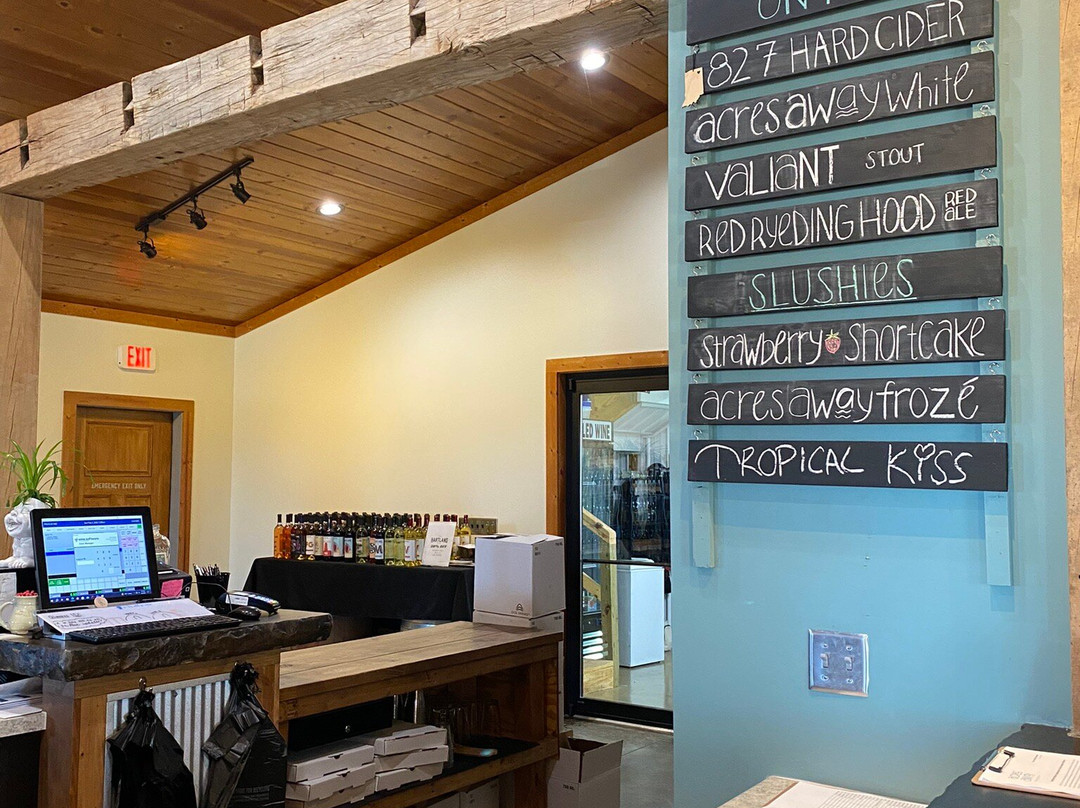 ON
827 HARD CIDER
acres away white
VALIANT STOUT
RED RYEDING HOOD RED ALE
SLUSHIES
Strawberry Shortcake
acres away frozé
TROPICAL KISS
EXIT
EMERGENCY EXIT ONLY
LED WINE